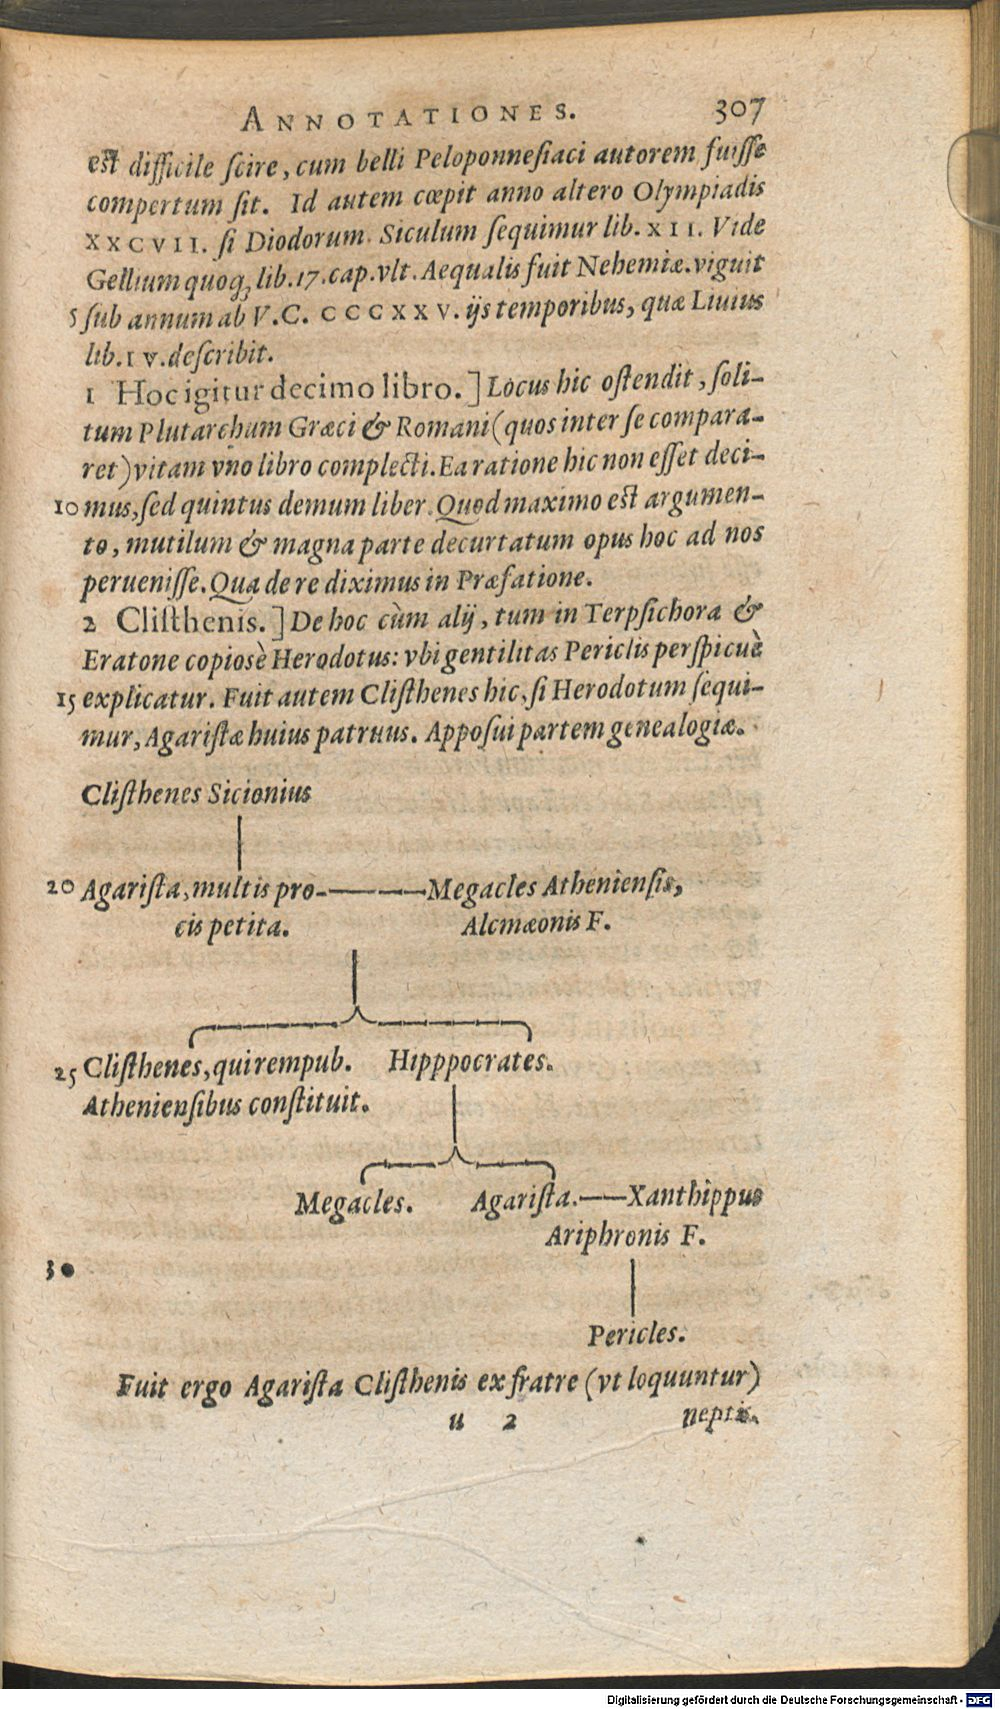 ANNOTATIONES. 307
est difficile ſcire, cum belli Peloponneſiaci autorem fuiſſe
compertum ſit. Id autem cœpit anno altero Olympiadis
XXCVII. ſi Diodorum Siculum ſequimur lib. XII. Vide
Gellium quoq; lib. 17. cap. vlt. Aequalis fuit Nehemiæ. viguit
5 ſub annum ab V.C. CCCXXV. ijs temporibus, quæ Liuius
lib. IV. deſcribit.
1 Hoc igitur decimo libro. ] Locus hic oſtendit, ſoli-
tum Plutarchum Græci & Romani (quos inter ſe compara-
ret) vitam vno libro complecti. Ea ratione hic non eſſet deci-
10 mus, ſed quintus demum liber. Quod maximo est argumen-
to, mutilum & magna parte decurtatum opus hoc ad nos
perueniſſe. Qua de re diximus in Præfatione.
2 Cliſthenis. ] De hoc cùm alij, tum in Terpſichora &
Eratone copiosè Herodotus: vbi gentilitas Periclis perſpicuè
15 explicatur. Fuit autem Cliſthenes hic, ſi Herodotum ſequi-
mur, Agariſtæ huius patruus. Appoſui partem genealogiæ.
Cliſthenes Sicionius
20 Agariſta, multis pro- Megacles Athenienſis,
cis petita. Alcmæonis F.
25 Cliſthenes, qui rempub. Hipppocrates.
Athenienſibus conſtituit.
Megacles. Agariſta. Xanthippus
Ariphronis F.
30
Pericles.
Fuit ergo Agariſta Cliſthenis ex fratre (vt loquuntur)
u 2 neptis.
Digitalisierung gefördert durch die Deutsche Forschungsgemeinschaft - DFG